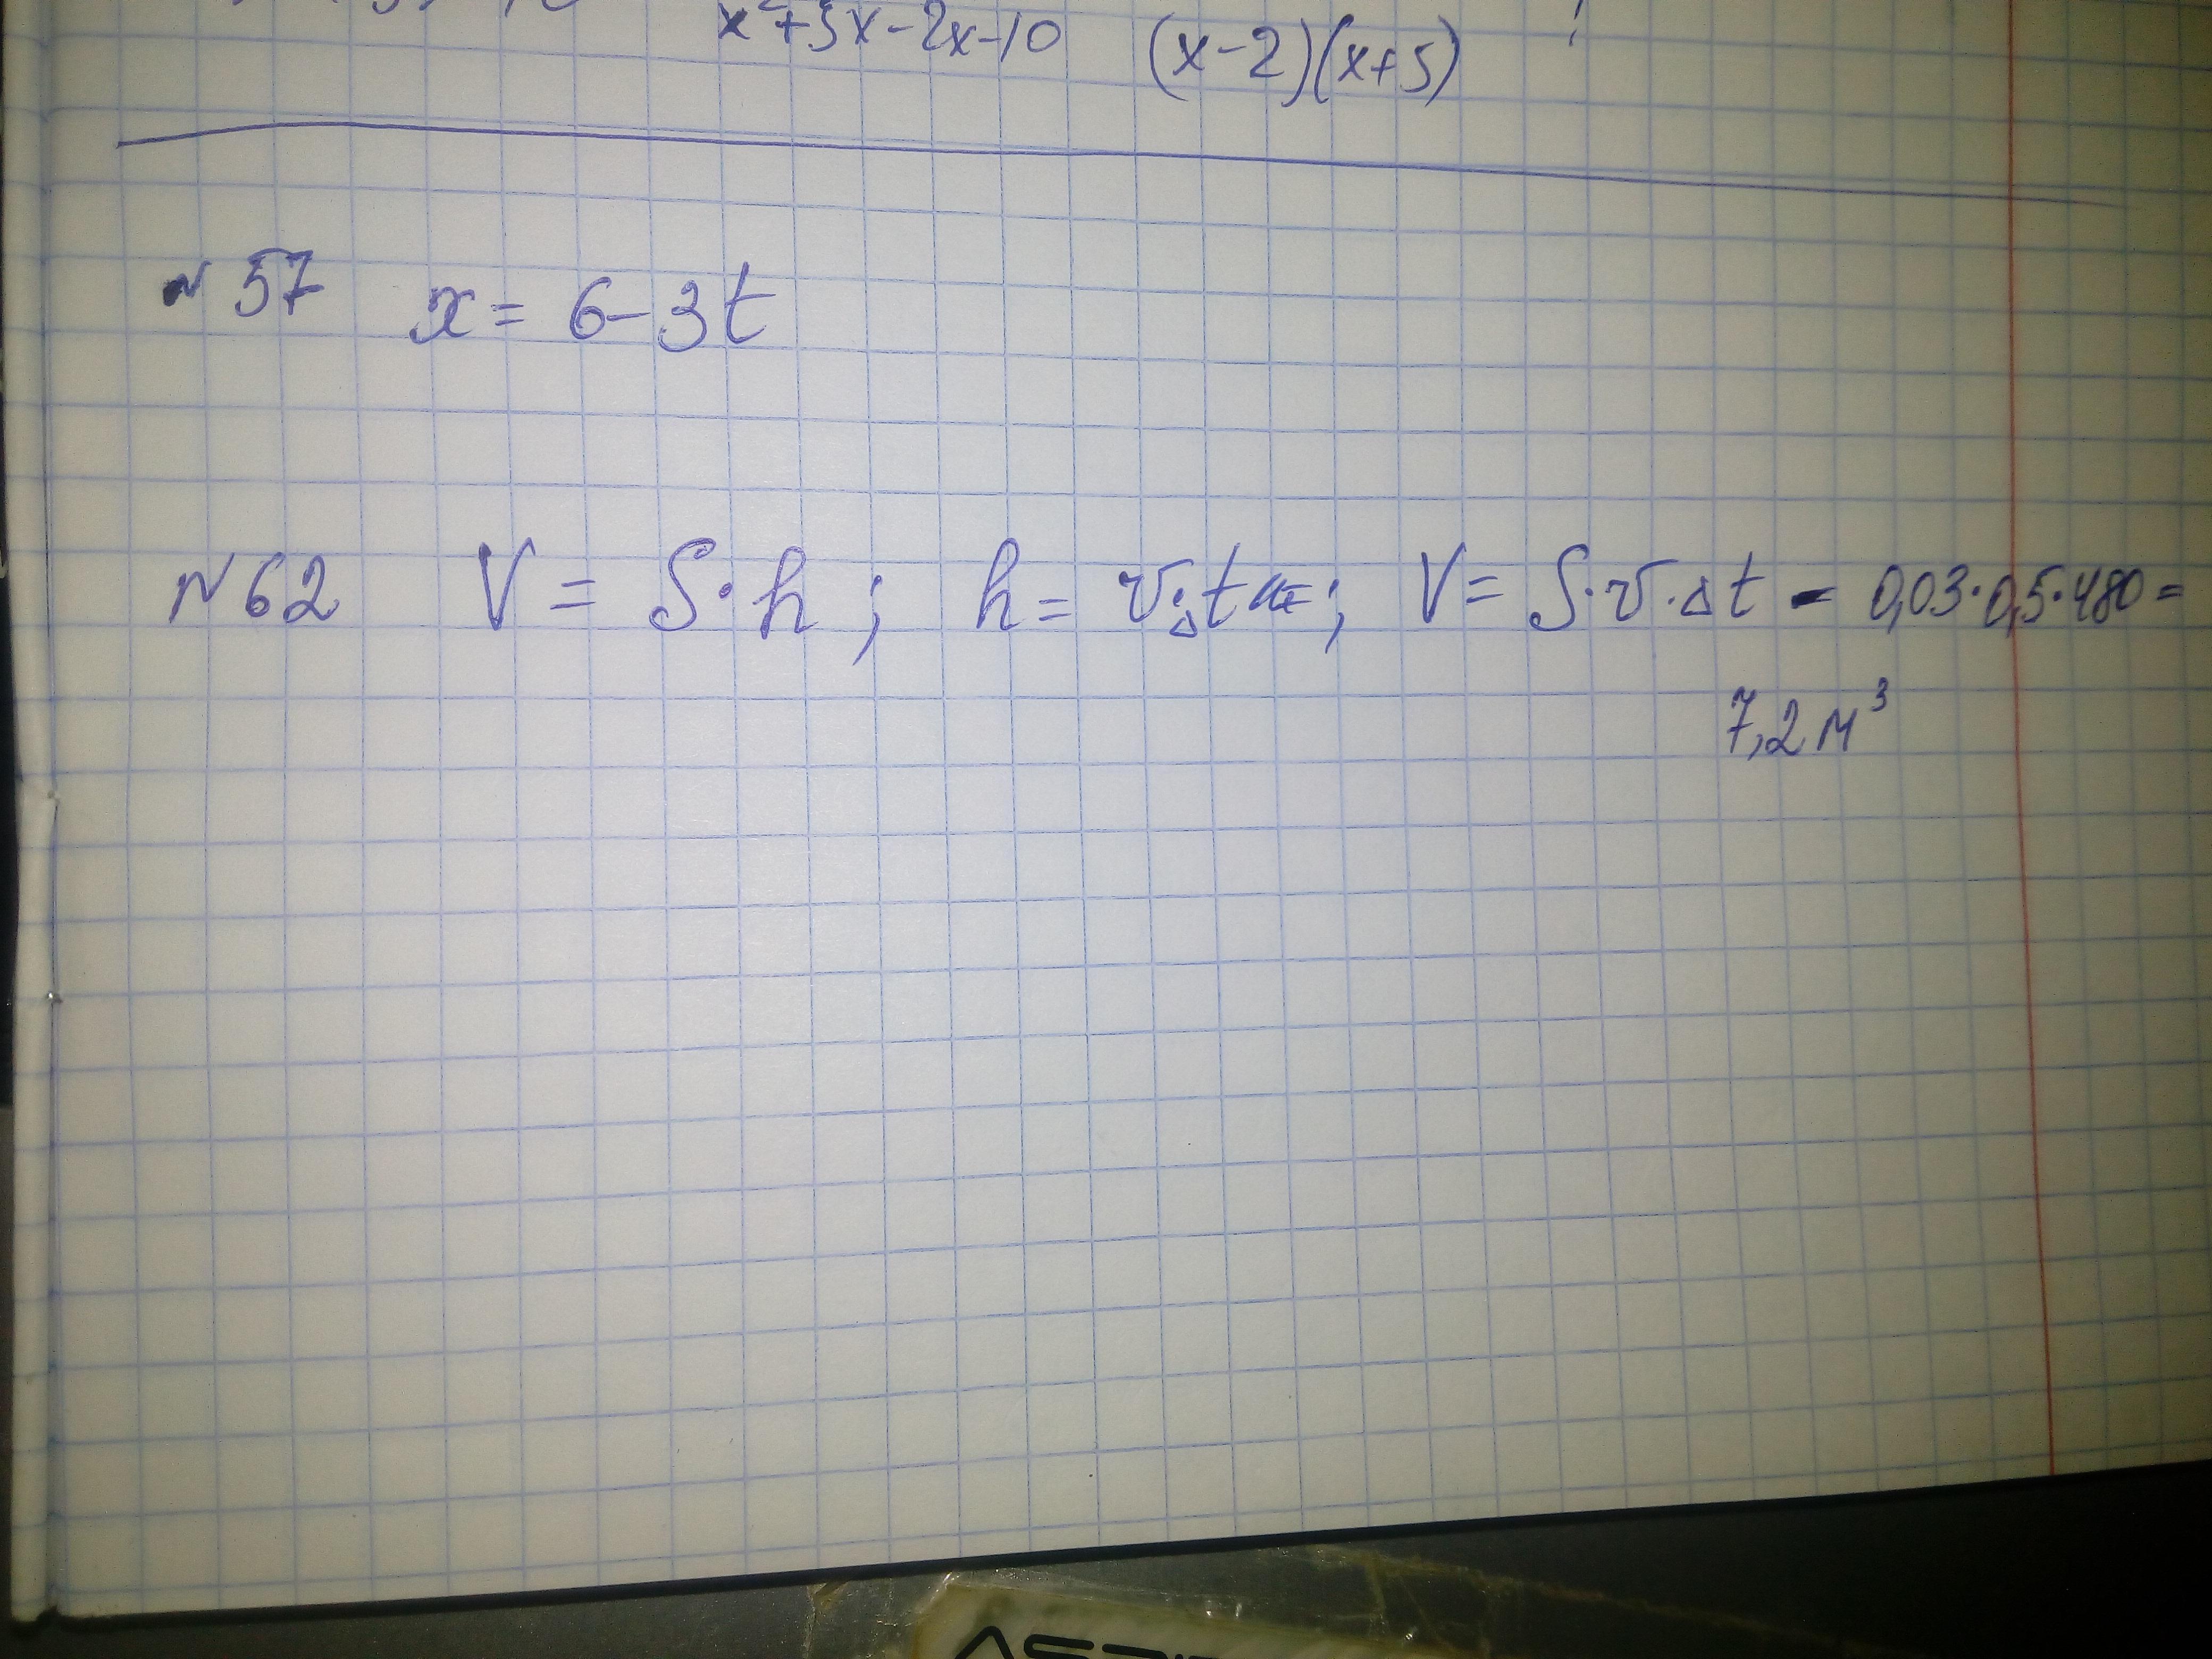 x²+5x-2x-10 (x-2)(x+5)
N57 x = 6-3t
N62 V = S·h ; h = v·Δt ; V = S·v·Δt = 0,03·0,5·480 =
7,2 м³